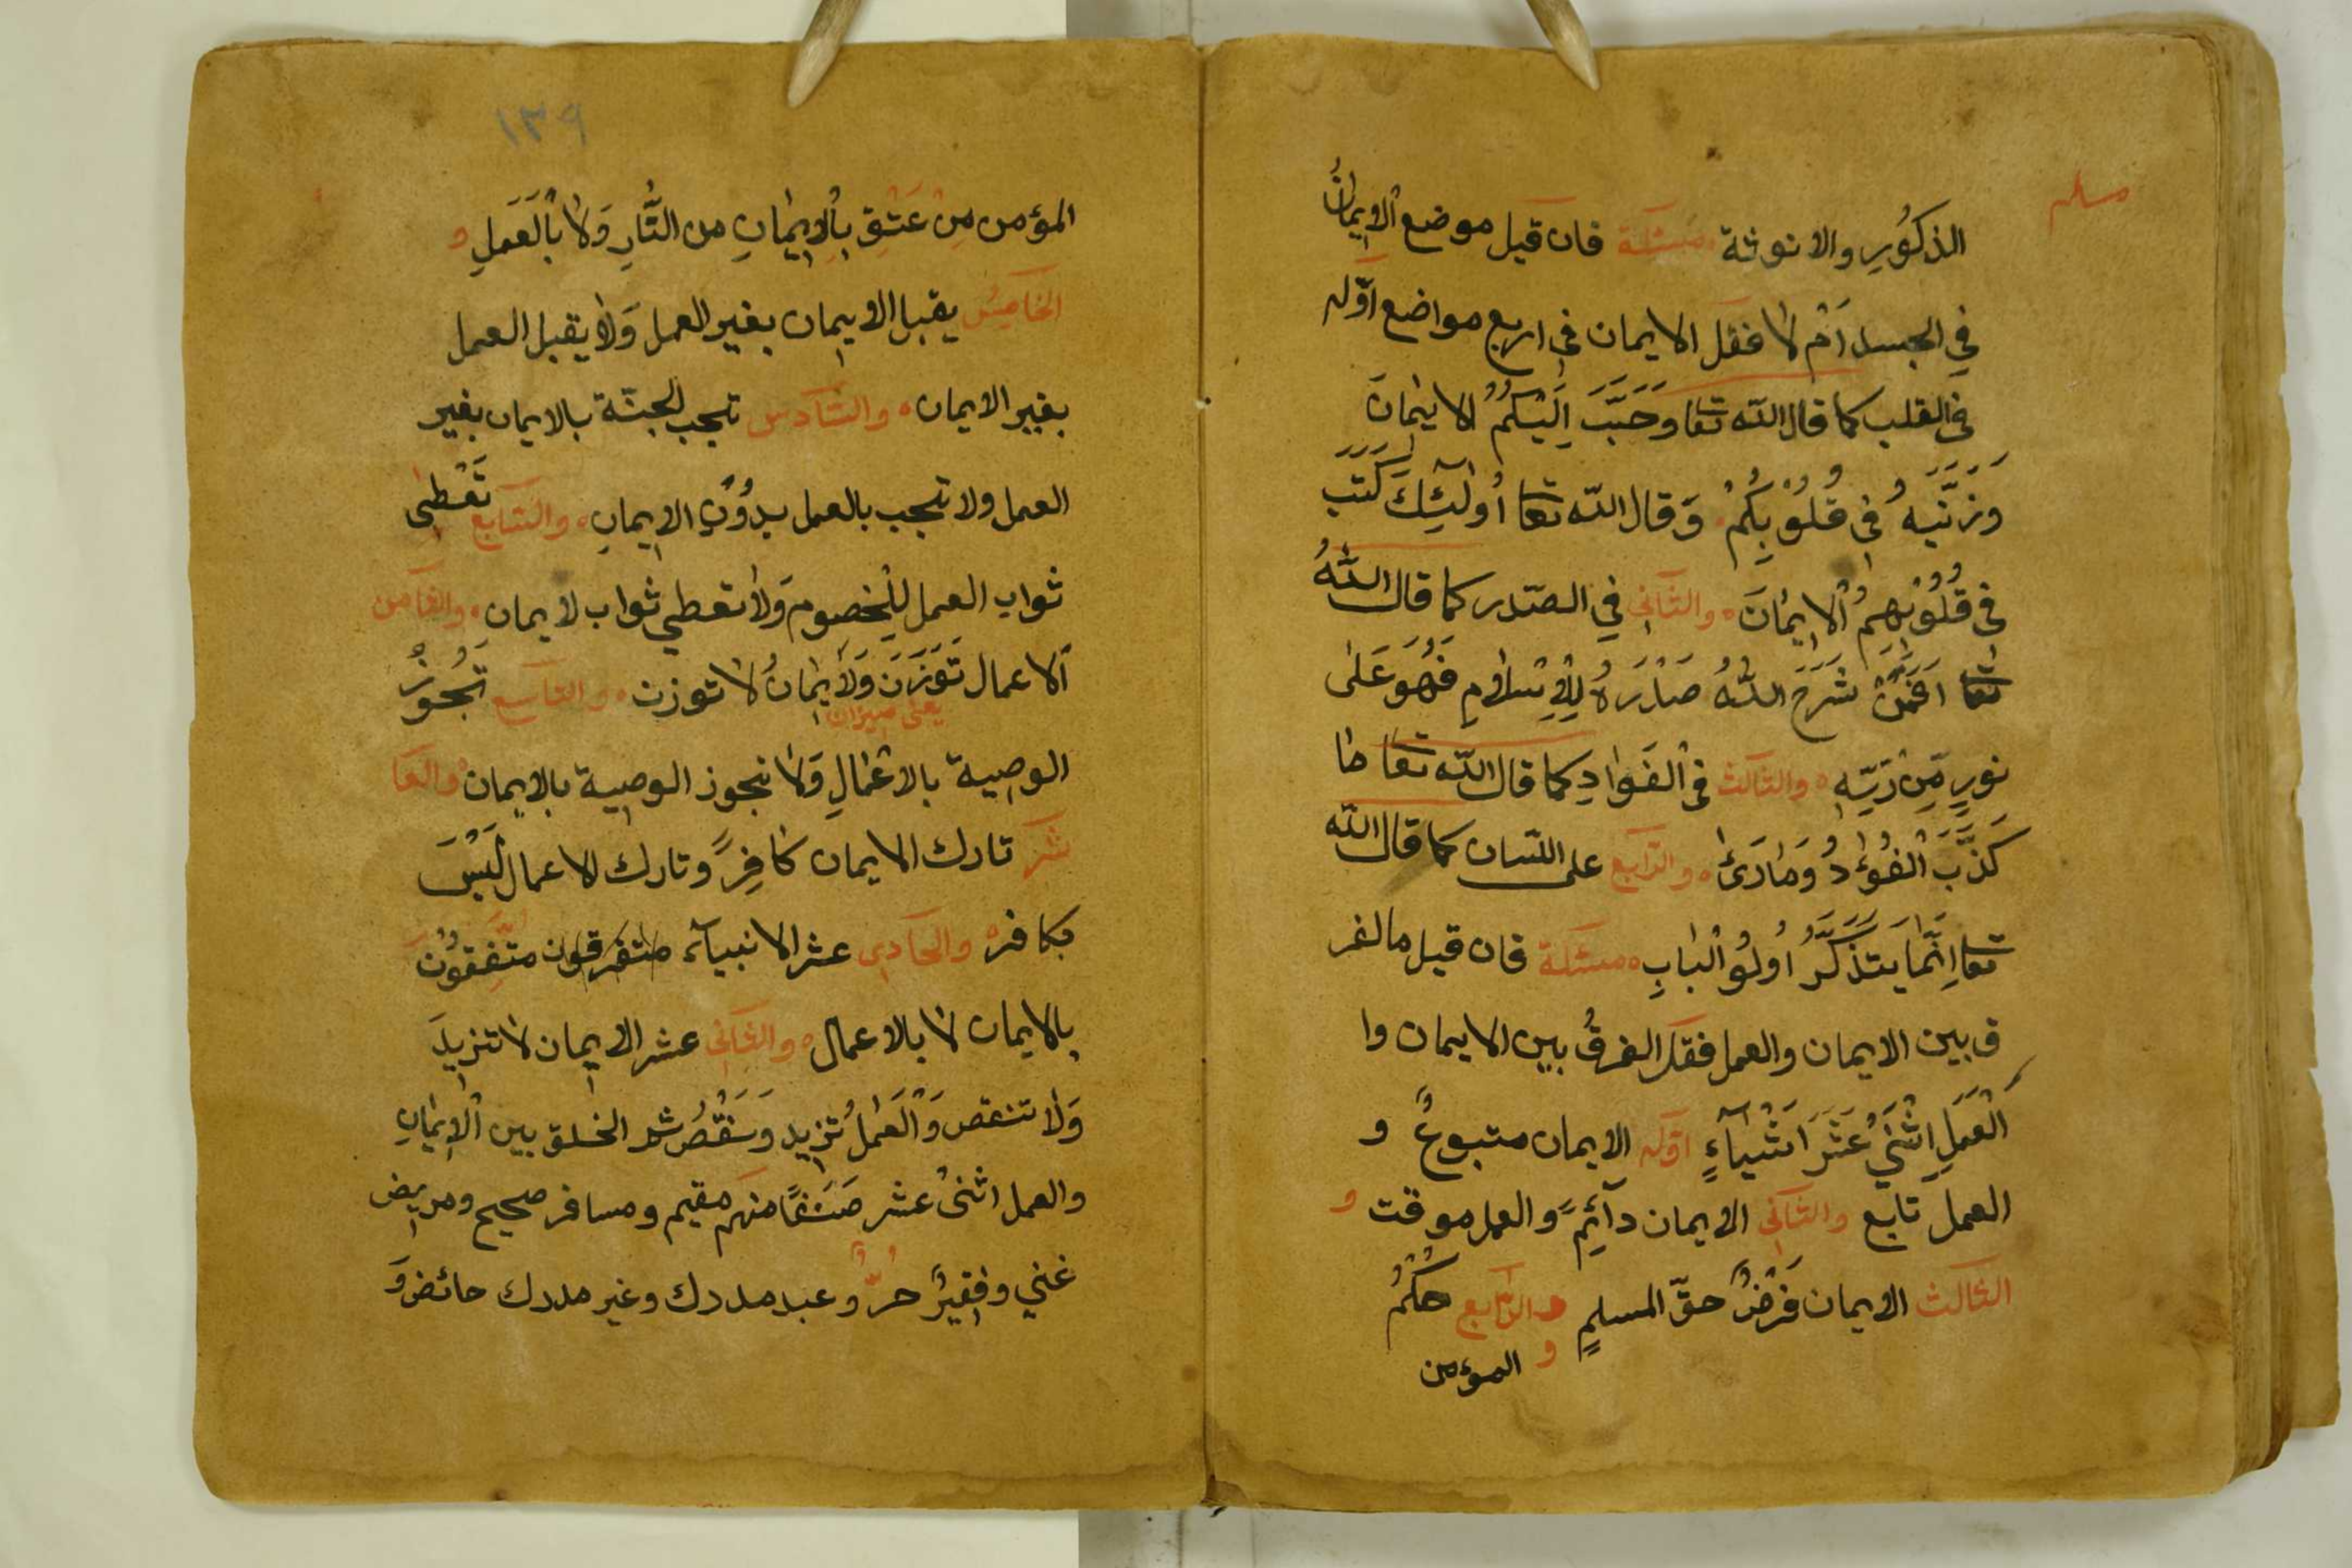 مسلم
الذكُورِ والانوثة مسئلة فان قيل موضع الايمانُ
في الجسد اَمْ لا فقل الايمان في اربع مواضع اوّله
في القلب كما قال الله تعا وَحَبَّبَ اِلَيْكُمُ الايمَانَ
وَزَيَّنَهُ فِي قُلُوْبِكُمْ وَقال الله تعا اُولٰٓئِكَ كَتَبَ
فِي قُلُوْبِهِمُ الْاِيمَانَ والثاني في الصّدر كما قال اللّٰهُ
تعا اَفَمَنْ شَرَحَ اللّٰهُ صَدْرَهُ لِلْاِسْلَامِ فَهُوَ عَلَى
نورٍ مِّن رَّبِّهِ والثالث في الفَوَادِ كما قال الله تعا ما
كَذَّبَ الْفُؤَادُ وَمَارَىٰ والرّابع على اللّسان كما قال الله
تعا اِنَّمَا يَتَذَكَّرُ اُولُو الْبَابِ مسئلة فان قيل ما الفر
ق بين الايمان والعمل فقل الفرقُ بين الايمان وا
الْعَمَلِ اثْنَيْ عَشَرَ اَشْيَآءٍ اوّله الايمان متبوعٌ و
العمل تابع والثاني الايمان دآئِمً والعمل موقت و
الثالث الايمان فَرْضٌ حقّ المسلمٍ و الرّابع حُكْمُ
و المؤمن
١٣٩
المؤمن مِنْ عَتِقَ بِالْاِيمَانِ من النَّارِ وَلَا بالْعَمَلِ و
الخامِسُ يقبل الايمان بغير العمل وَلا يقبل العمل
بغير الايمان والسّادس تجب الجنّة بالايمان بغير
العمل ولا تجب بالعمل بِدُوْنِ الايمانِ والسّابع تَعْطِي
ثواب العمل لِلْخصوم وَلا تعطي ثواب لايمان والثامن
الاعمال تَوْزَنَ وَلَايمَانُ لا توزن والتاسع تَجُوْزُ
يعني ميزان
الوصية بالاعْمَالِ وَلا تجوز الوصية بالايمان والعا
شر تارك الايمان كَافِرً وتارك الاعمال لَيْسَ
بكافر والحَادِي عشر الانبيآء متفرقون متَّفِقُوْنَ
بالايمان لا بالاعمال والثاني عشر الايمان لا تزيدَ
وَلا تنقص وَالْعَمَلُ تزيد وَتنقُصُ الخلق بين الايمَانِ
والعمل اثنيْ عشر صَنفًا منهم مقيم ومسافر صحيح ومريض
غني وفقيرٌ حرٌّ وعبد مدرك وغير مدرك حائض وَ